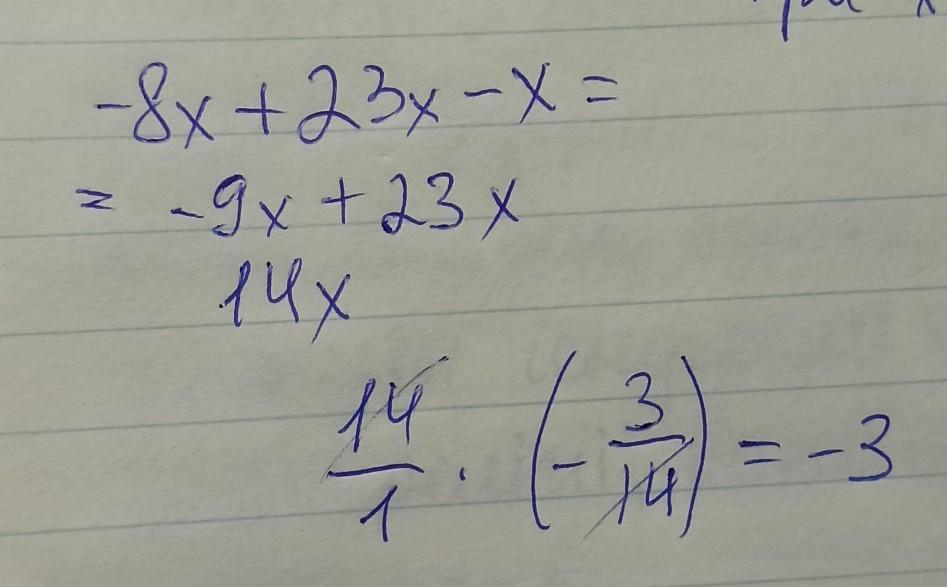 -8x + 23x - x =
= -9x + 23x
14x
14/1 · (-3/14) = -3